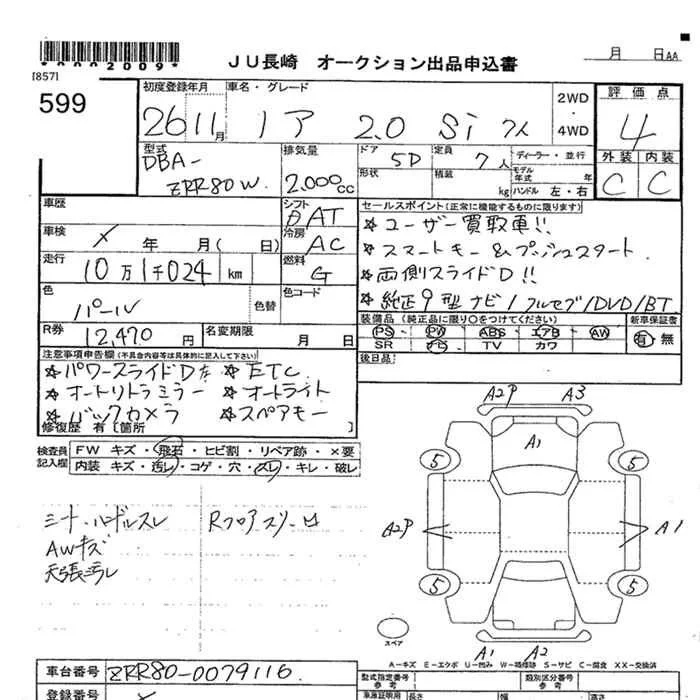 *0002009*
[857]
JU長崎 オークション出品申込書
月 日 AA
599
初度登録年月 車名・グレード
2WD
・
4WD
評価点
26 11月 ノア 2.0 Si
4
型式 排気量 ドア 定員 ディーラー・並行
外装 内装
DBA-
ZRR80W
2.000cc
5D 7人
形状 積載 kg
モデル年式 年
ハンドル 左・右
C C
車歴
シフト
AT
セールスポイント(正常に機能するものに限ります)
☆ユーザー買取車!!
車検 × 年 月(日)
冷房 AC
☆スマートキー&プッシュスタート
走行 10万1千024 km
燃料 G
☆両側スライドD!!
色 パール 色替
色コード
☆純正9型ナビ/フルセグ/DVD/BT
R券 12,470円 名変期限 月 日
装備品(純正品に限り○をつけてください) 新車保証書
PS PW ABS エアB AW
SR ナビ TV カワ
有 無
後日品
注意事項申告欄(不具合内容等は具体的に記入して下さい)
☆パワースライドD左 ☆ETC
☆オートリトラミラー ☆オートライト
☆バックカメラ ☆スペアキー
修復歴 有[箇所 ]
検査員記入欄
FW キズ・飛石・ヒビ割・リペア跡・×要
内装 キズ・汚レ・コゲ・穴・スレ・キレ・破レ
シート・ハンドルスレ Rフロアスリ
AWキズ
天張汚レ
A2P A3
A1
5 5
A2P A1
5 5
スペア
A1 A2
A−キズ E−エクボ U−凹み W−補修跡 S−サビ C−腐食 XX−交換済
車台番号 ZRR80-0079116
型式指定番号 参考
類別区分番号 参考
登録番号
車庫証明用 参考
長さ 幅 高さ